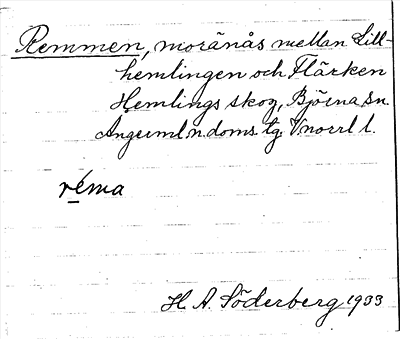 Remmen, moränås mellan Lill-
hemlingen och Flärken
Hemlings skog, Björna sn.
Ångerml. n. doms. tg. V.norrl l.
réma
H. A. Söderberg 1933